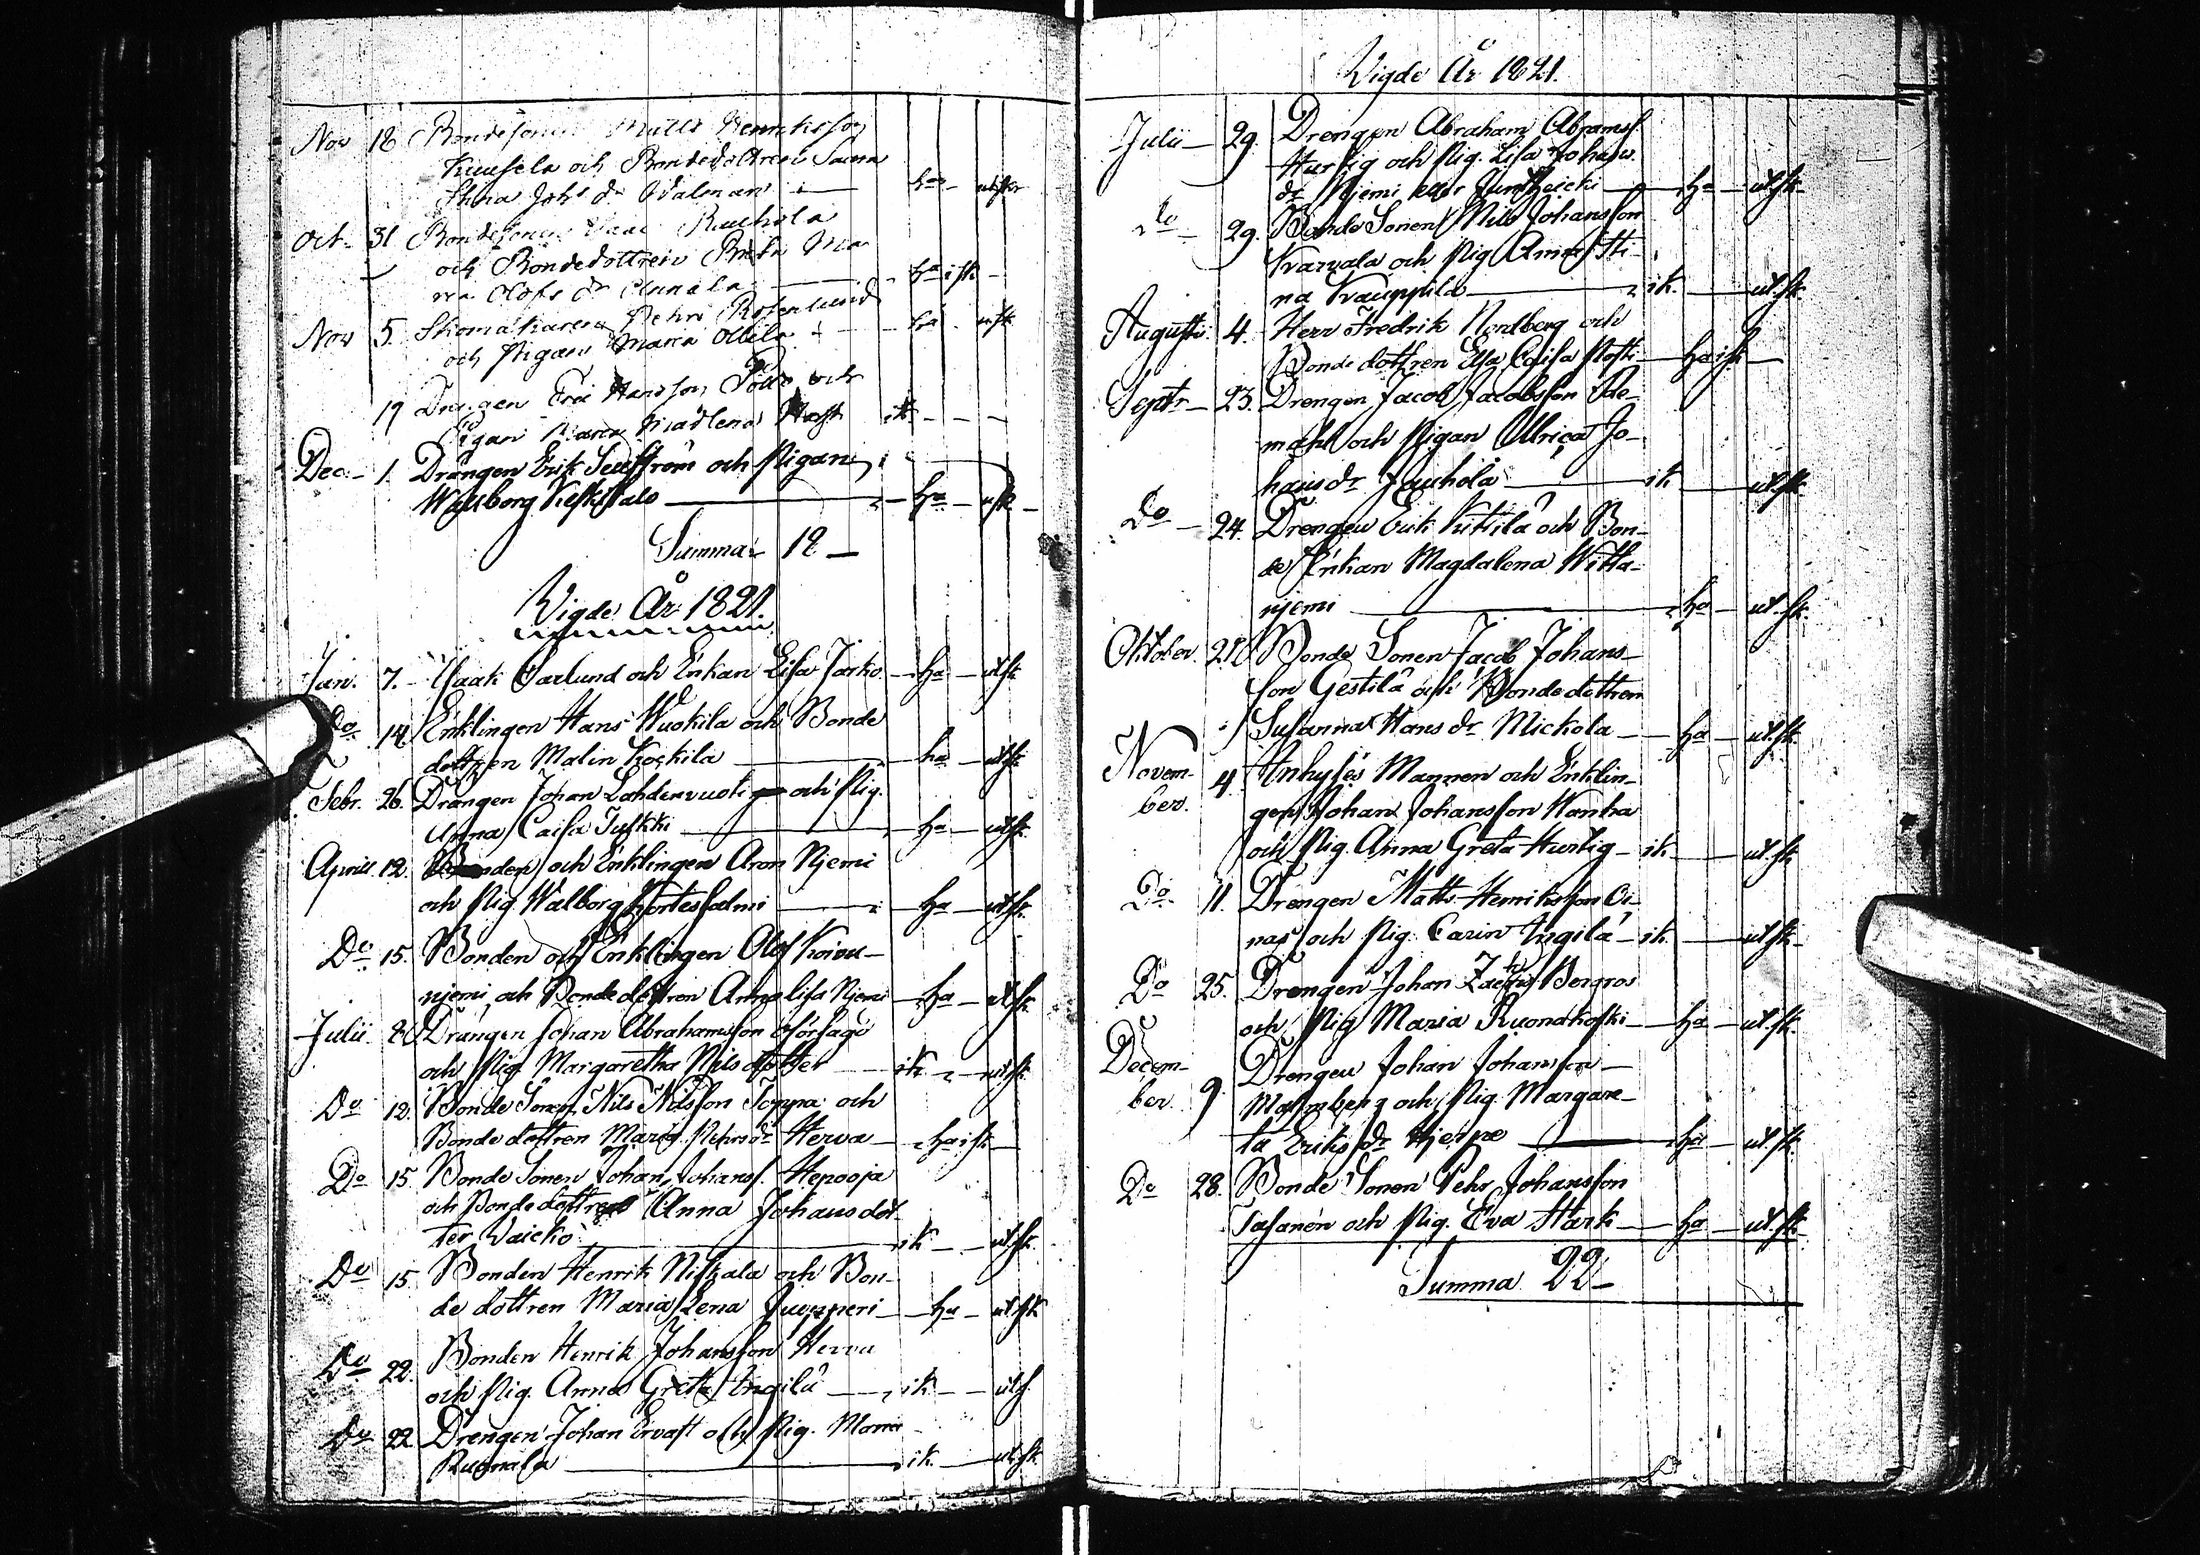 Nov 18 Bondesonen Matts Henriksson
Kuusela och Bondedottren Sanna
Stina Johs dr Walman ha utsk
Oct. 31 Bondesonen Ruohola
och Bondedottren Brita Ma
ria Olofs dr Annala ha isk
Nov 5. Skomakaren Pehr Rosenlund
och Pigan Maria Ollila ha utsk
19 Drengen Eric Hansson Pöllö och
Pigan Maria Madlena ik
Dec. 1. Drängen Erik Sellström och Pigan
Walborg Keskitalo ha utsk
Summa 18
Vigde År 1821.
Jan. 7. Isaak Oarlund och Enkan Lisa Jarko ha utsk
Do 14. Enklingen Hans Wuokila och Bonde
dottren Malin Kockila ha utsk
Febr. 26. Drängen Johan Lahdenvuoti och Pig.
Anna Caisa Sukki ha utsk
April 12. Bonden och Enklingen Aron Njemi
och Pig. Walborg Kortesalmi ha utsk
Do 15. Bonden och Enklingen Olof Koivu-
njemi och Bondedottren Annalisa Njemi ha utsk
Julii 8. Drängen Johan Abrahamsson
och Pig. Margaretha Nilsdotter ik utsk
Do 12. Bonde Sonen Nils Nilsson Toppa och
Bonde dottren Maria Pehrs dr Herva ha isk
Do 15 Bonde Sonen Johan Johanss. Hepooja
och Bondedottren Anna Johansdot-
ter Vaicko ik utsk
Do 15 Bonden Henrik Niskala och Bon-
de dottren Maria Lena Jupperi ha utsk
Do 22. Bonden Henrik Johansson Herva
och Pig. Anna Greta Ängilä ik uts
Do 22 Drengen Johan Ervast och Pig. Maria
Ruonala ik utsk
Vigde År 1821.
Julii 29. Drengen Abraham Abramss.
Hurtig och Pig. Lisa Johans
dr Njemi eller Junthoicki ha utsk
Do 29. Bonde Sonen Nils Johansson
Karvala och Pig. Anna Sti-
na Kauppila ik utsk
Augusti 4. Herr Fredrik Nordberg och
Bonde dottren Elsa Caisa Posti ha isk
Septr 23. Drengen Jacob Jacobsson Ode-
mahl och Pigan Ulrica Jo-
hans dr Jauhola ik utsk
Do 24. Drengen Erik Kitkilä och Bon-
de Enkan Magdalena Witta-
njemi ha utsk
Oktober 21 Bonde Sonen Jacob Johans-
son Gestilä och Bondedottren
Susanna Hans dr Mickola ha utsk
Novem-
ber. 4. Inhyses Mannen och Enklin-
gen Johan Johansson Wanha
och Pig. Anna Greta Hurtig ik utsk
Do 11. Drengen Matts Henriksson Oi-
nas och Pig. Carin Ängilä ik utsk
Do 25. Drengen Johan Zachris Bergros
och Pig Maria Ruonakoski ha utsk
Decem-
ber 9. Drengen Johan Johansson
Malmberg och Pig. Margare-
ta Eriks dr Hjerpe ha utsk
Do 28. Bonde Sonen Pehr Johansson
Tasanen och Pig. Eva Stark ha utsk
Summa 22